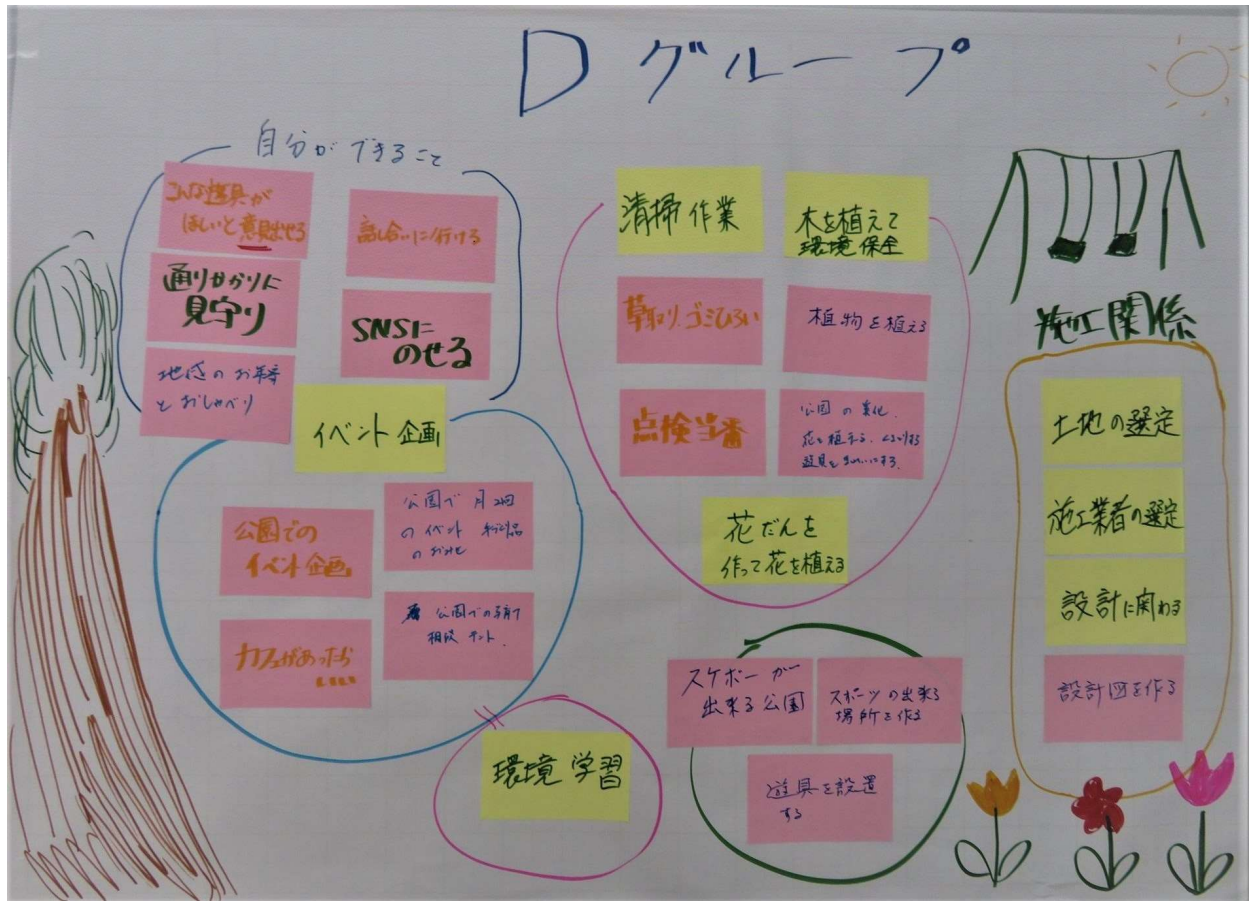 Dグループ
自分ができること
こんな遊具が
ほしいと意見出せる
話し合いに行ける
通りかかりに
見守り
SNSに
のせる
とおしゃべり
イベント企画
公園での
イベント企画
公園で月2回
のイベント
カフェがあったら
公園での子育て
相談テント
清掃作業
木を植えて
環境保全
草取り、ゴミひろい
植物を植える
点検当番
公園の美化、
花を植える、
遊具をきれいにする。
花だんを
作って花を植える
環境学習
スケボーが
出来る公園
スポーツの出来る
場所を作る
遊具を設置
する
施工関係
土地の選定
施工業者の選定
設計に関わる
設計図を作る